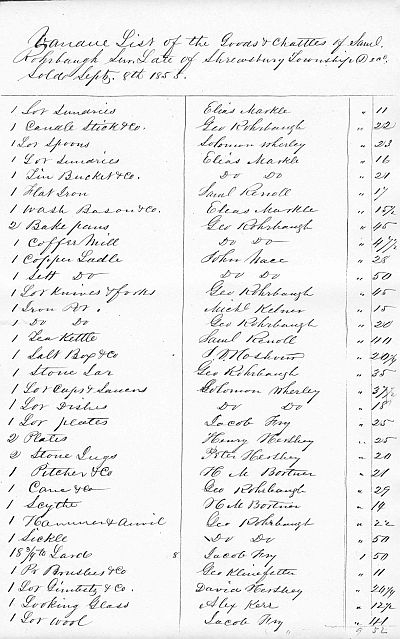 Vandue List of the Goods & Chattles of Saml.
Rohrbaugh Sen. Late of Shrewsbury Township Decd.
Sold Septr. 8th 1858.
1 Lot Sundries Elias Markle " 11
1 Candle Stick & Co. Geo Rohrbaugh " 22
1 Lot Spoons Solomon Wherley " 23
1 Lot Sundries Elias Markle " 16
1 Tin Bucket & Co. Do Do " 21
1 Flat Iron Saml Renoll " 17
1 Wash Bason & Co. Elias Markle " 15½
2 Bake pans Geo Rohrbaugh " 45
1 Coffee Mill Do Do " 47½
1 Copper Ladle John Nace " 25
1 Sett Do Do Do " 50
1 Lot Knives & forks Geo Rohrbaugh " 45
1 Iron Pot. Michl Kelner " 15
1 Do Do Geo Rohrbaugh " 20
1 Tea Kettle Saml Renoll " 40
1 Salt Box & Co
1 Stone Jar Geo Rohrbaugh " 35
1 Lot Cups & Saucers Solomon Wherley " 37½
1 Lot Dishes Do Do " 18
1 Lot plates Jacob Fry " 25
2 Plates Henry Hershey " 25
2 Stone Jugs Peter Hershey " 20
1 Pitcher & Co H M Bortner " 21
1 Cane & Co Geo Rohrbaugh " 29
1 Scythe H M Bortner " 14
1 Hammer & Anvil Geo Rohrbaugh " 22
1 Sickle Do Do " 50
Lard 8 Jacob Fry 1 50
1 Pr Brushes & Co Geo Klinefelter " 11
1 Lot Gimlets & Co. David Hershey
1 Looking Glass Alex Kerr " 12½
1 Lot Wool Jacob Fry " 41
9 52